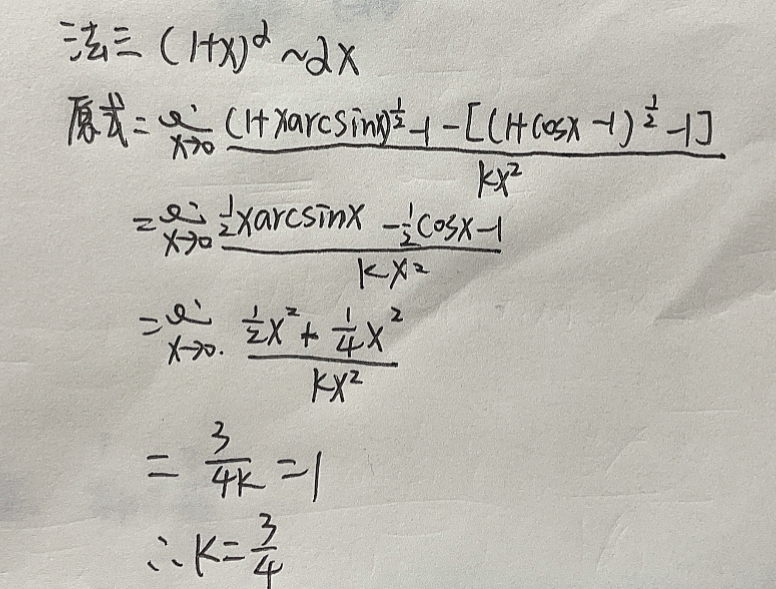 法三 (1+x)^α ~ αx
原式 = lim x→0 ((1+xarcsinx)^(1/2) -1 - [(1+cosx -1)^(1/2) -1]) / kx²
= lim x→0 (1/2 xarcsinx - 1/2 cosx-1) / kx²
= lim x→0. (1/2 x² + 1/4 x²) / kx²
= 3/4k = 1
∴ k = 3/4